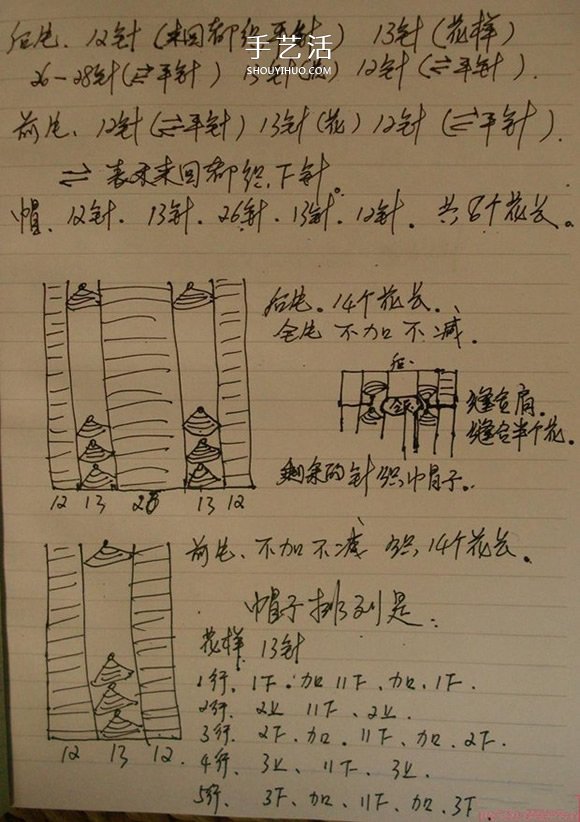 后片、12针(来回都织平针) 13针(花样)
手艺活
SHOUYIHUO.COM
26-28针(⇄平针) 13针(花) 12针(⇄平针).
前片、12针(⇄平针) 13针(花) 12针(⇄平针).
⇄ 表示来回都织下针。
帽、12针、13针、26针、13针、12针。共8个花长。
后片。14个花长、
全片 不加不减.
后.
缝合肩.
缝合半个花.
剩余的针织帽子。
12 13 26 13 12
前片、不加不减 织14个花长。
帽子排列是:
花样 13针
1行、1下、加 11下、加、1下.
2行、2上 11下、2上.
3行、2下、加、11下、加、2下.
4行、3上、11下、3上.
5行、3下、加、11下、加、3下.
12 13 12